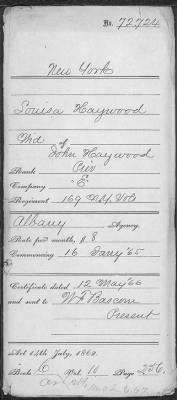 No. 72724
New York
Louisa Haywood
Wid of
John Haywood
Rank Priv
Company "E"
Regiment 169 N.Y. Vols
Albany Agency.
Rate per month, $ 8
Commencing 16 Jany '65
Certificate dated 12 May '66
and sent to W. F. Bascom
Present
Act 14th July, 1862.
Book C Vol. 10 Page 256.